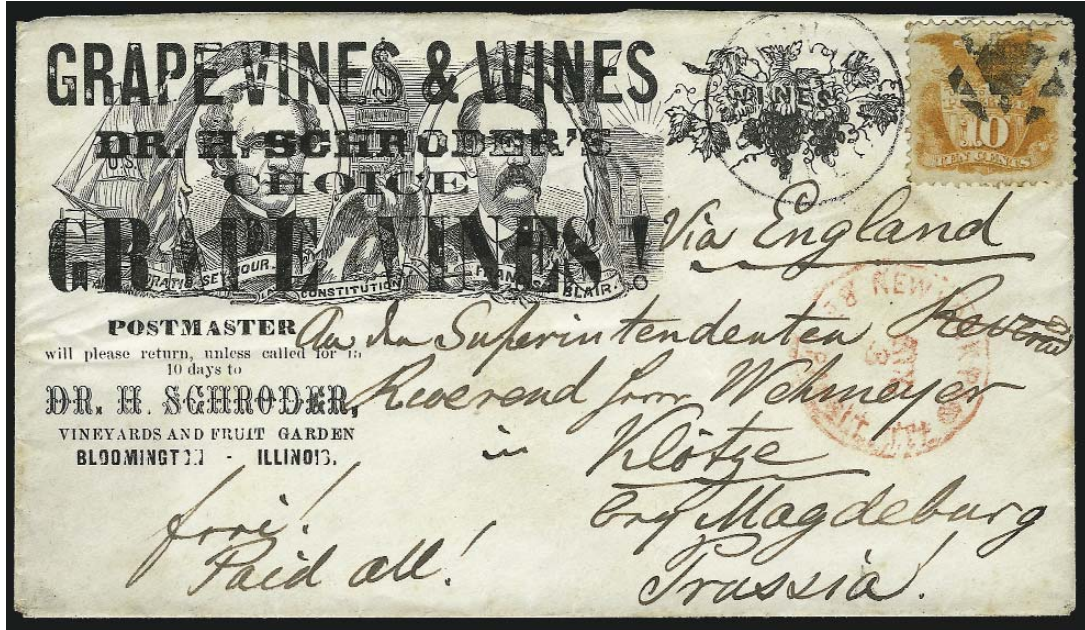 GRAPE VINES & WINES
DR. H. SCHRODER'S
CHOICE
GRAPE VINES!
U.S.
HORATIO SEYMOUR.
CONSTITUTION
FRANCIS P. BLAIR.
WINES
10
TEN CENTS
Via England
POSTMASTER
will please return, unless called for in
10 days to
DR. H. SCHRODER,
VINEYARDS AND FRUIT GARDEN
BLOOMINGTON - ILLINOIS.
An den Superintendenten
Reverend Herrn Wehmeyer
in Klötze
bey Magdeburg
Prussia!
frei!
Paid all!
NEW